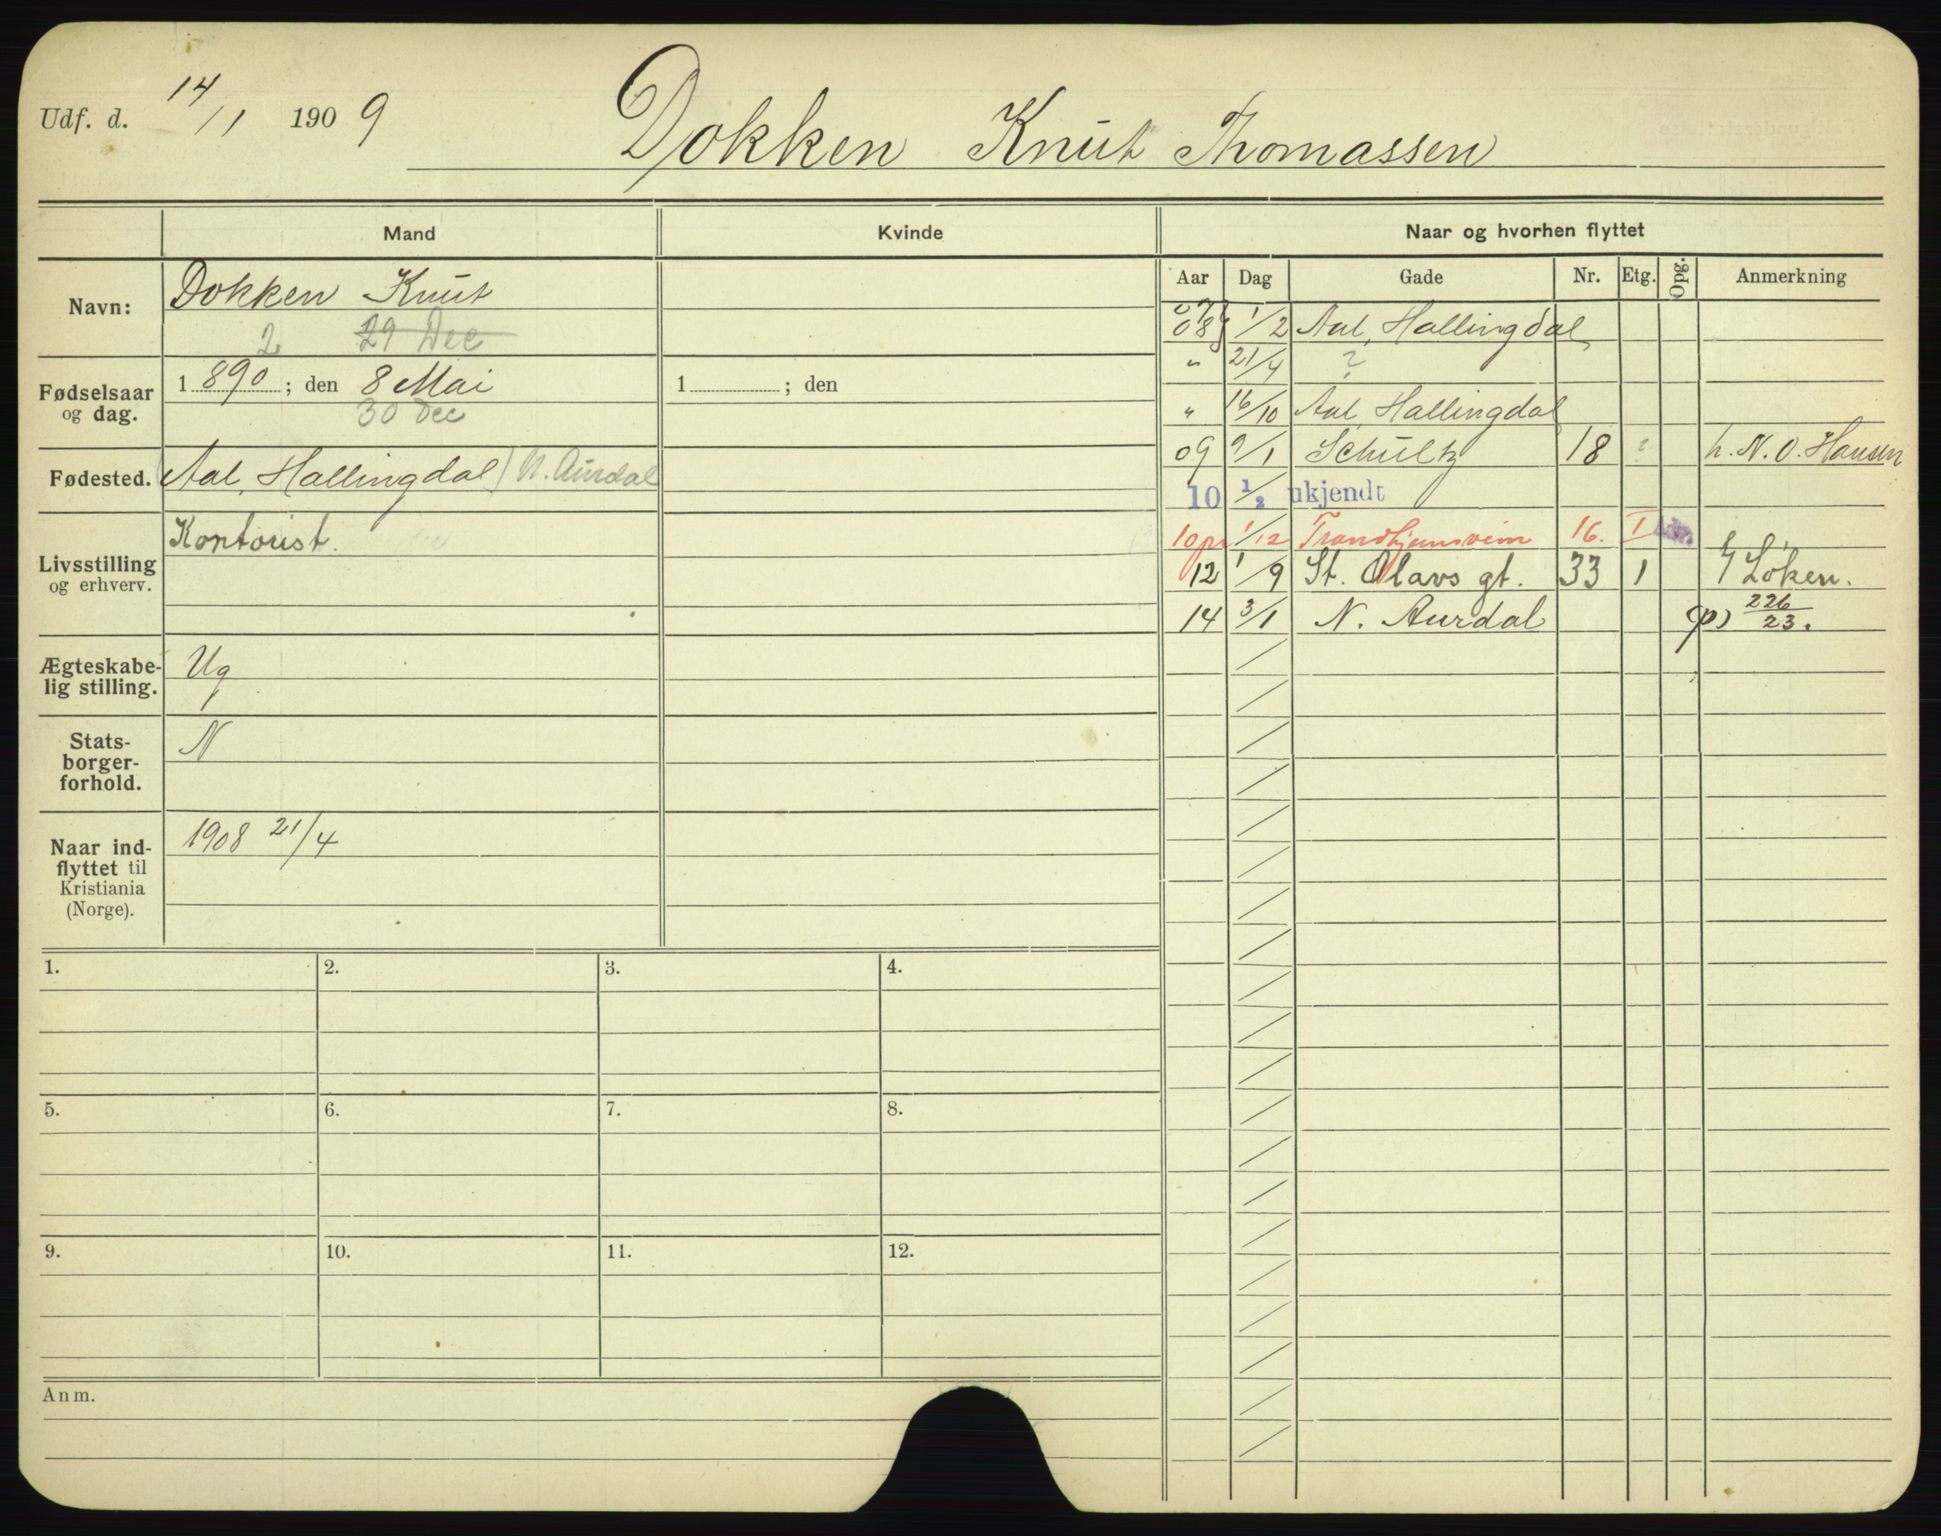 Udf. d. 14/1 1909
Dokken Knut Thomassen
Mand
Kvinde
Naar og hvorhen flyttet
Aar Dag Gade Nr. Etg. Opg. Anmerkning
Navn: Dokken Knut
2 29 Dec
Fødselsaar og dag. 1 890 ; den 8 Mai
30 Dec
1 ; den
Fødested. Aal, Hallingdal) N. Aurdal
Livsstilling og erhverv. Kontorist.
Ægteskabe-
lig stilling. Ug
Stats-
borger-
forhold. N
Naar ind-
flyttet til
Kristiania
(Norge). 1908 21/4
07
08 1/2 Aal, Hallingdal
" 21/4 ?
" 16/10 Aal, Hallingdal
09 9/1 Schultz 18 ? h. N. O. Hansen
10 1/2 ukjendt
10 1/12 Trondhjemsvein 16. I
12 1/9 St. Olavs gt. 33 1 Løken.
14 3/1 N. Aurdal (p) 226/23.
1. 2. 3. 4.
5. 6. 7. 8.
9. 10. 11. 12.
Anm.